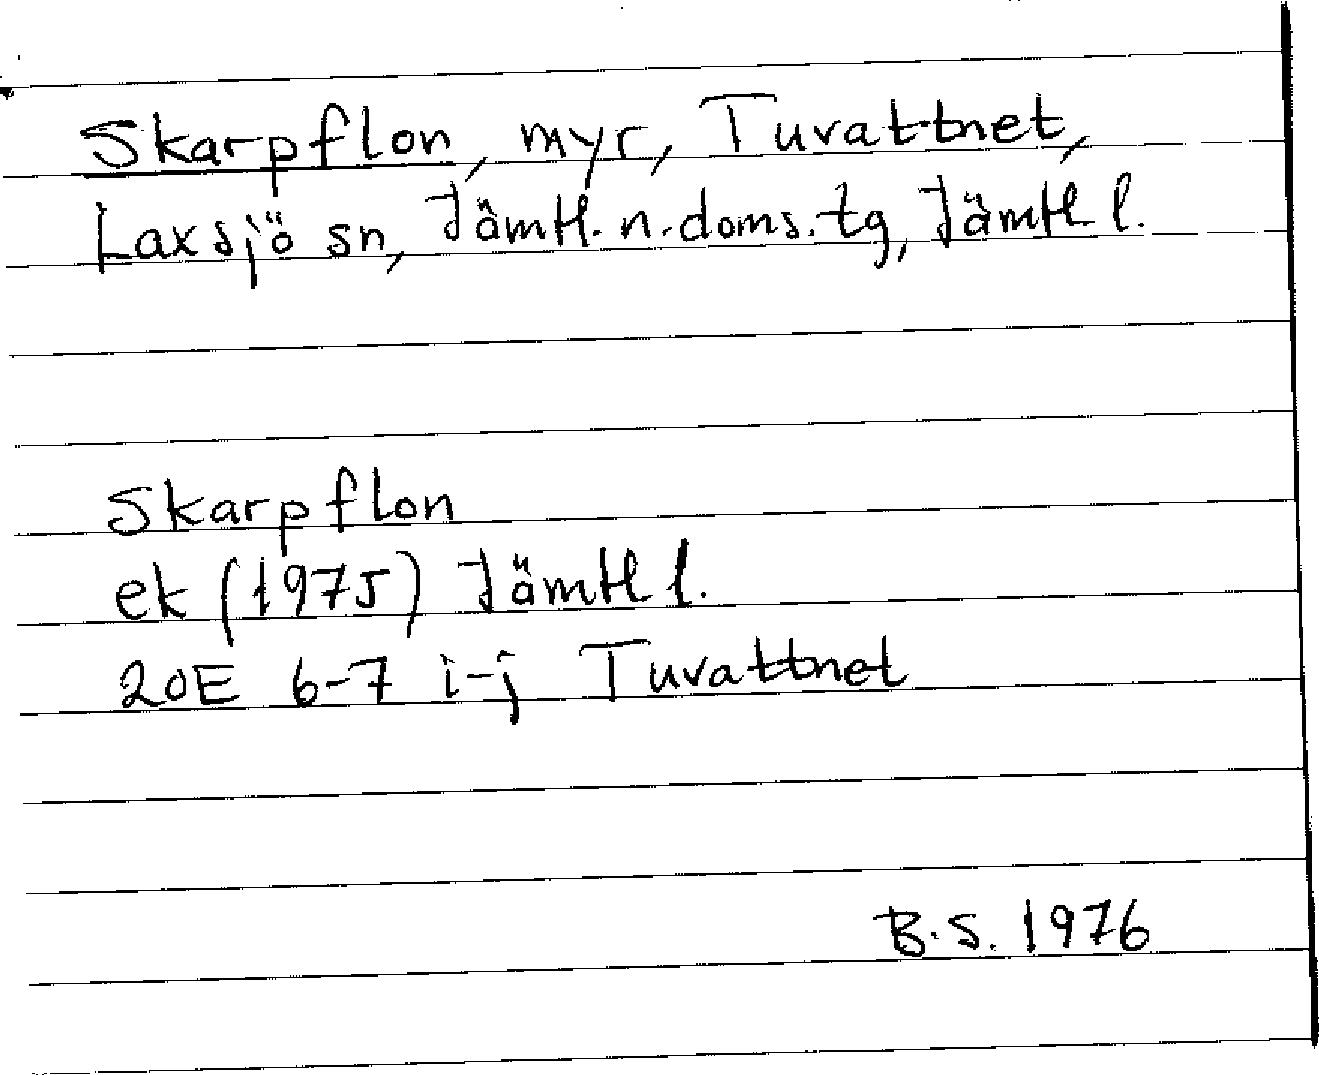 Skarpflon, myr, Tuvattnet,
Laxsjö sn, Jämtl. n. doms. tg, Jämtl l.
Skarpflon
ek (1975) Jämtl l.
20E 6-7 i-j Tuvattnet
B.S. 1976